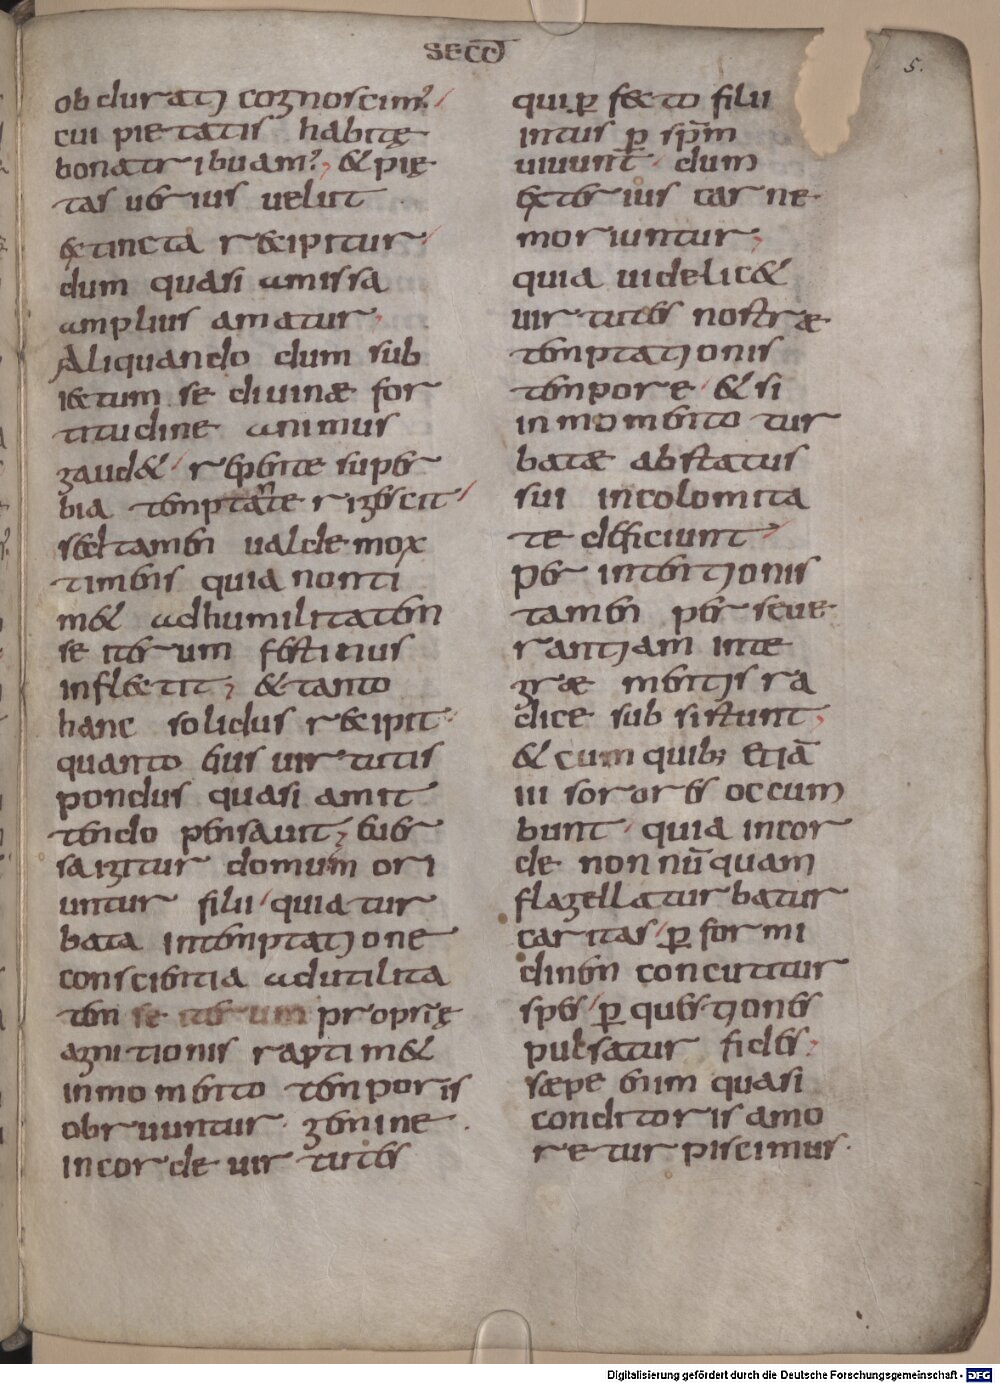 SECD
5.
obdurati cognoscim?
cui pietatis habitę
bonatribuam? & pię
tas uberius uelut
extincta recipitur
dum quasi amissa
amplius amatur
Aliquando dum sub
iectum se diuinae for
titudine animus
gaud& repente super
bia temptante rigescit
sed tamen ualde mox
timens quia non ti
m& ad humilitatem
se iterum festinus
inflectit; & tanto
hanc solidus recipit
quanto eius uirtutis
pondus quasi amit
tendo pensauit; euer
sa igitur domum ori
untur filii quia tur
bata in temptatione
conscientia ad utilita
tem se iterum proprię
agnitionis raptim &
in momento temporis
obruuntur gemine
in corde uirtutes
qui ꝑfecto filii
intus ꝑ spm̄
uiuunt dum
exterius carne
moriuntur;
quia uidelic&
uirtutes nostrae
temptationis
tempore & si
in momento tur
batae ab status
sui incolomita
te deficiunt
per intentionis
tamen perseue
rantiam inte
grae mentis ra
dice subsistunt;
& cum quib; etiā
iii sorores occum
bunt quia in cor
de non nūquam
flagella turbatur
caritas ꝑ formi
dinen concutitur
spes ꝑ questiones
pulsatur fides;
saepe enim quasi
conditoris amo
re turpiscimus
Digitalisierung gefördert durch die Deutsche Forschungsgemeinschaft - DFG